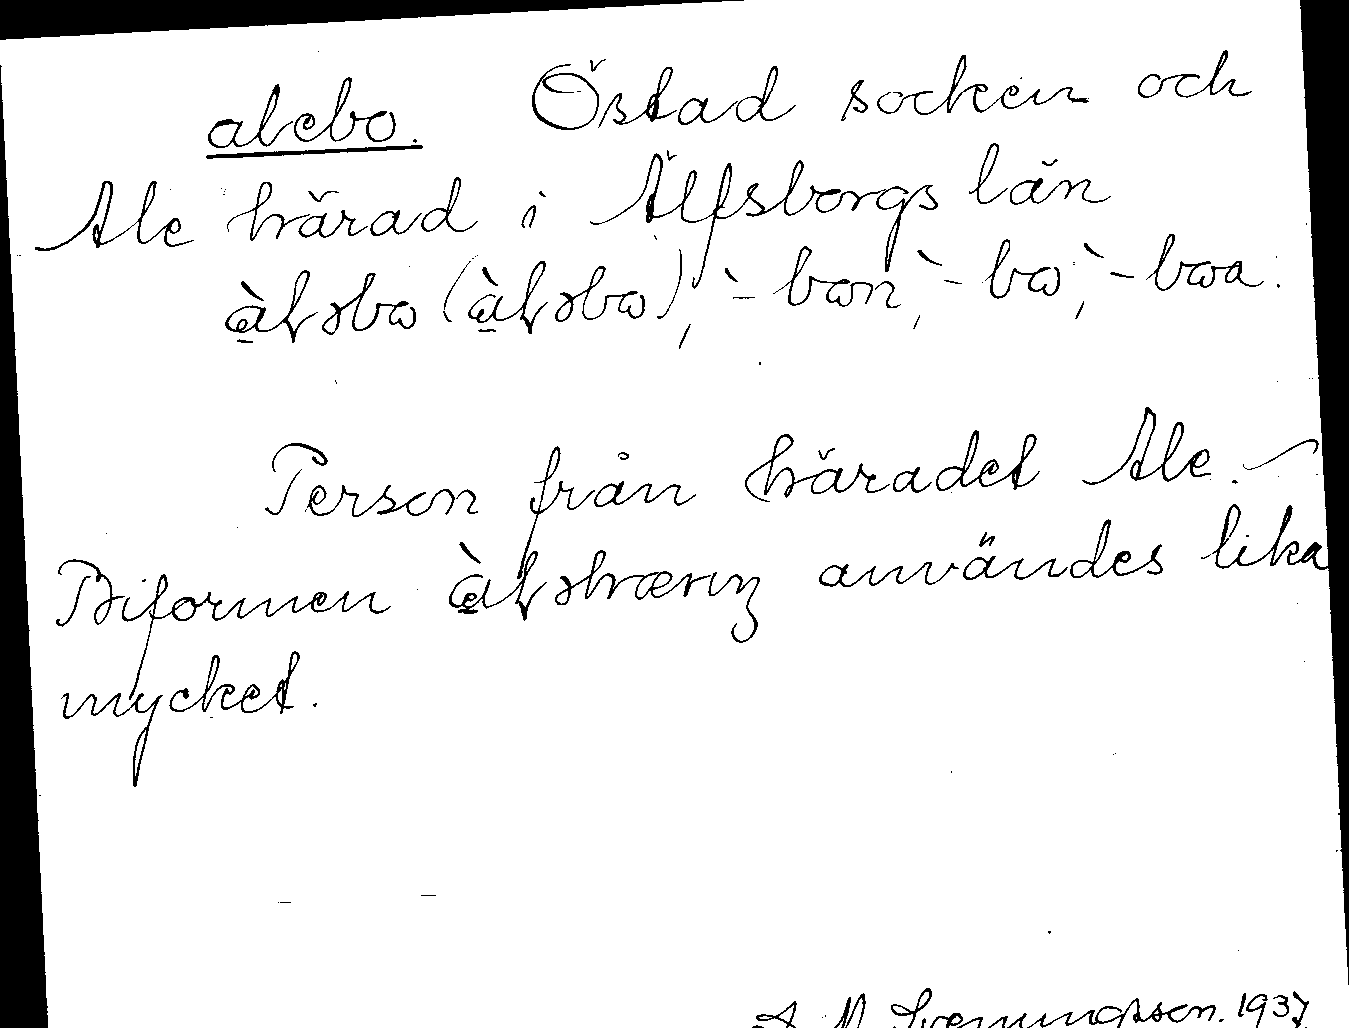 alebo. Östad socken och
Ale härad i Älfsborgs län
àɫəbω (àɫəbω), `-bωn, `-bω, `-bωa.
Person från häradet Ale. –
Biformen àɫəhæriŋ användes lika
mycket.
1937